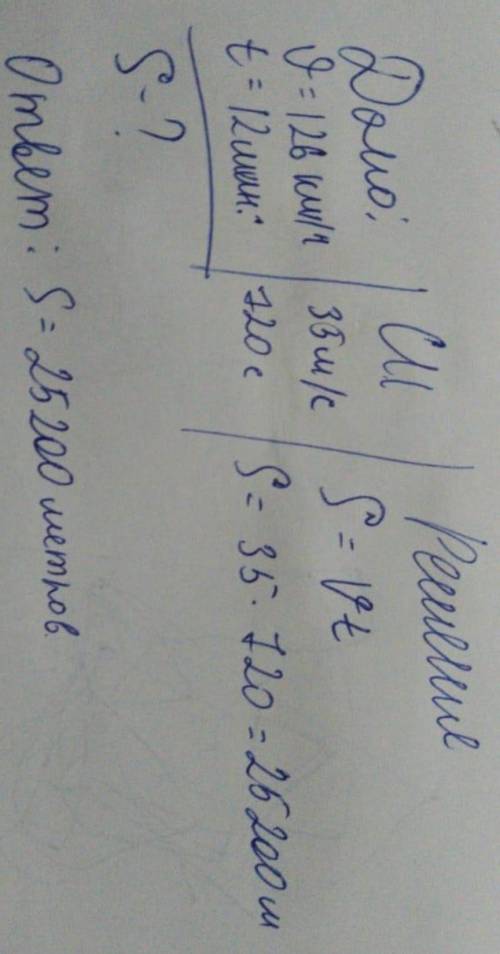 Дано:
υ = 126 км/ч
t = 12 мин.
S - ?
СИ
35 м/с
720 с
Решение
S = υt
S = 35 · 720 = 25200 м
Ответ: S = 25200 метров.